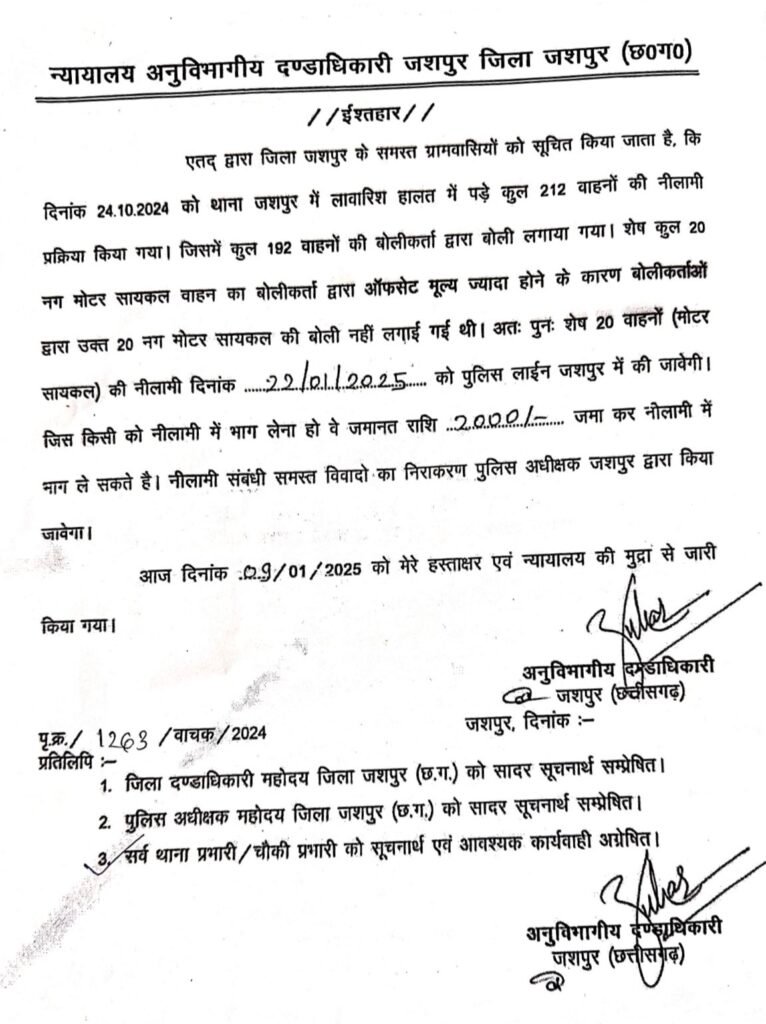 न्यायालय अनुविभागीय दण्डाधिकारी जशपुर जिला जशपुर (छ0ग0)
//ईश्तहार//
एतद् द्वारा जिला जशपुर के समस्त ग्रामवासियों को सूचित किया जाता है, कि
दिनांक 24.10.2024 को थाना जशपुर में लावारिश हालत में पड़े कुल 212 वाहनों की नीलामी
प्रक्रिया किया गया। जिसमें कुल 192 वाहनों की बोलीकर्ता द्वारा बोली लगाया गया। शेष कुल 20
नग मोटर सायकल वाहन का बोलीकर्ता द्वारा ऑफसेट मूल्य ज्यादा होने के कारण बोलीकर्ताओं
द्वारा उक्त 20 नग मोटर सायकल की बोली नहीं लगाई गई थी। अतः पुनः शेष 20 वाहनों (मोटर
सायकल) की नीलामी दिनांक ......22/01/2025..... को पुलिस लाईन जशपुर में की जावेगी।
जिस किसी को नीलामी में भाग लेना हो वे जमानत राशि ..2000/-...... जमा कर नीलामी में
भाग ले सकते है। नीलामी संबंधी समस्त विवादो का निराकरण पुलिस अधीक्षक जशपुर द्वारा किया
जावेगा।
आज दिनांक .09/01/2025 को मेरे हस्ताक्षर एवं न्यायालय की मुद्रा से जारी
किया गया।
अनुविभागीय दण्डाधिकारी
जशपुर (छत्तीसगढ़)
पृ.क्र./ 1263 /वाचक/2024
जशपुर, दिनांक :–
प्रतिलिपि :–
1. जिला दण्डाधिकारी महोदय जिला जशपुर (छ.ग.) को सादर सूचनार्थ सम्प्रेषित।
2. पुलिस अधीक्षक महोदय जिला जशपुर (छ.ग.) को सादर सूचनार्थ सम्प्रेषित।
3. सर्व थाना प्रभारी/चौकी प्रभारी को सूचनार्थ एवं आवश्यक कार्यवाही अग्रेषित।
अनुविभागीय दण्डाधिकारी
जशपुर (छत्तीसगढ़)